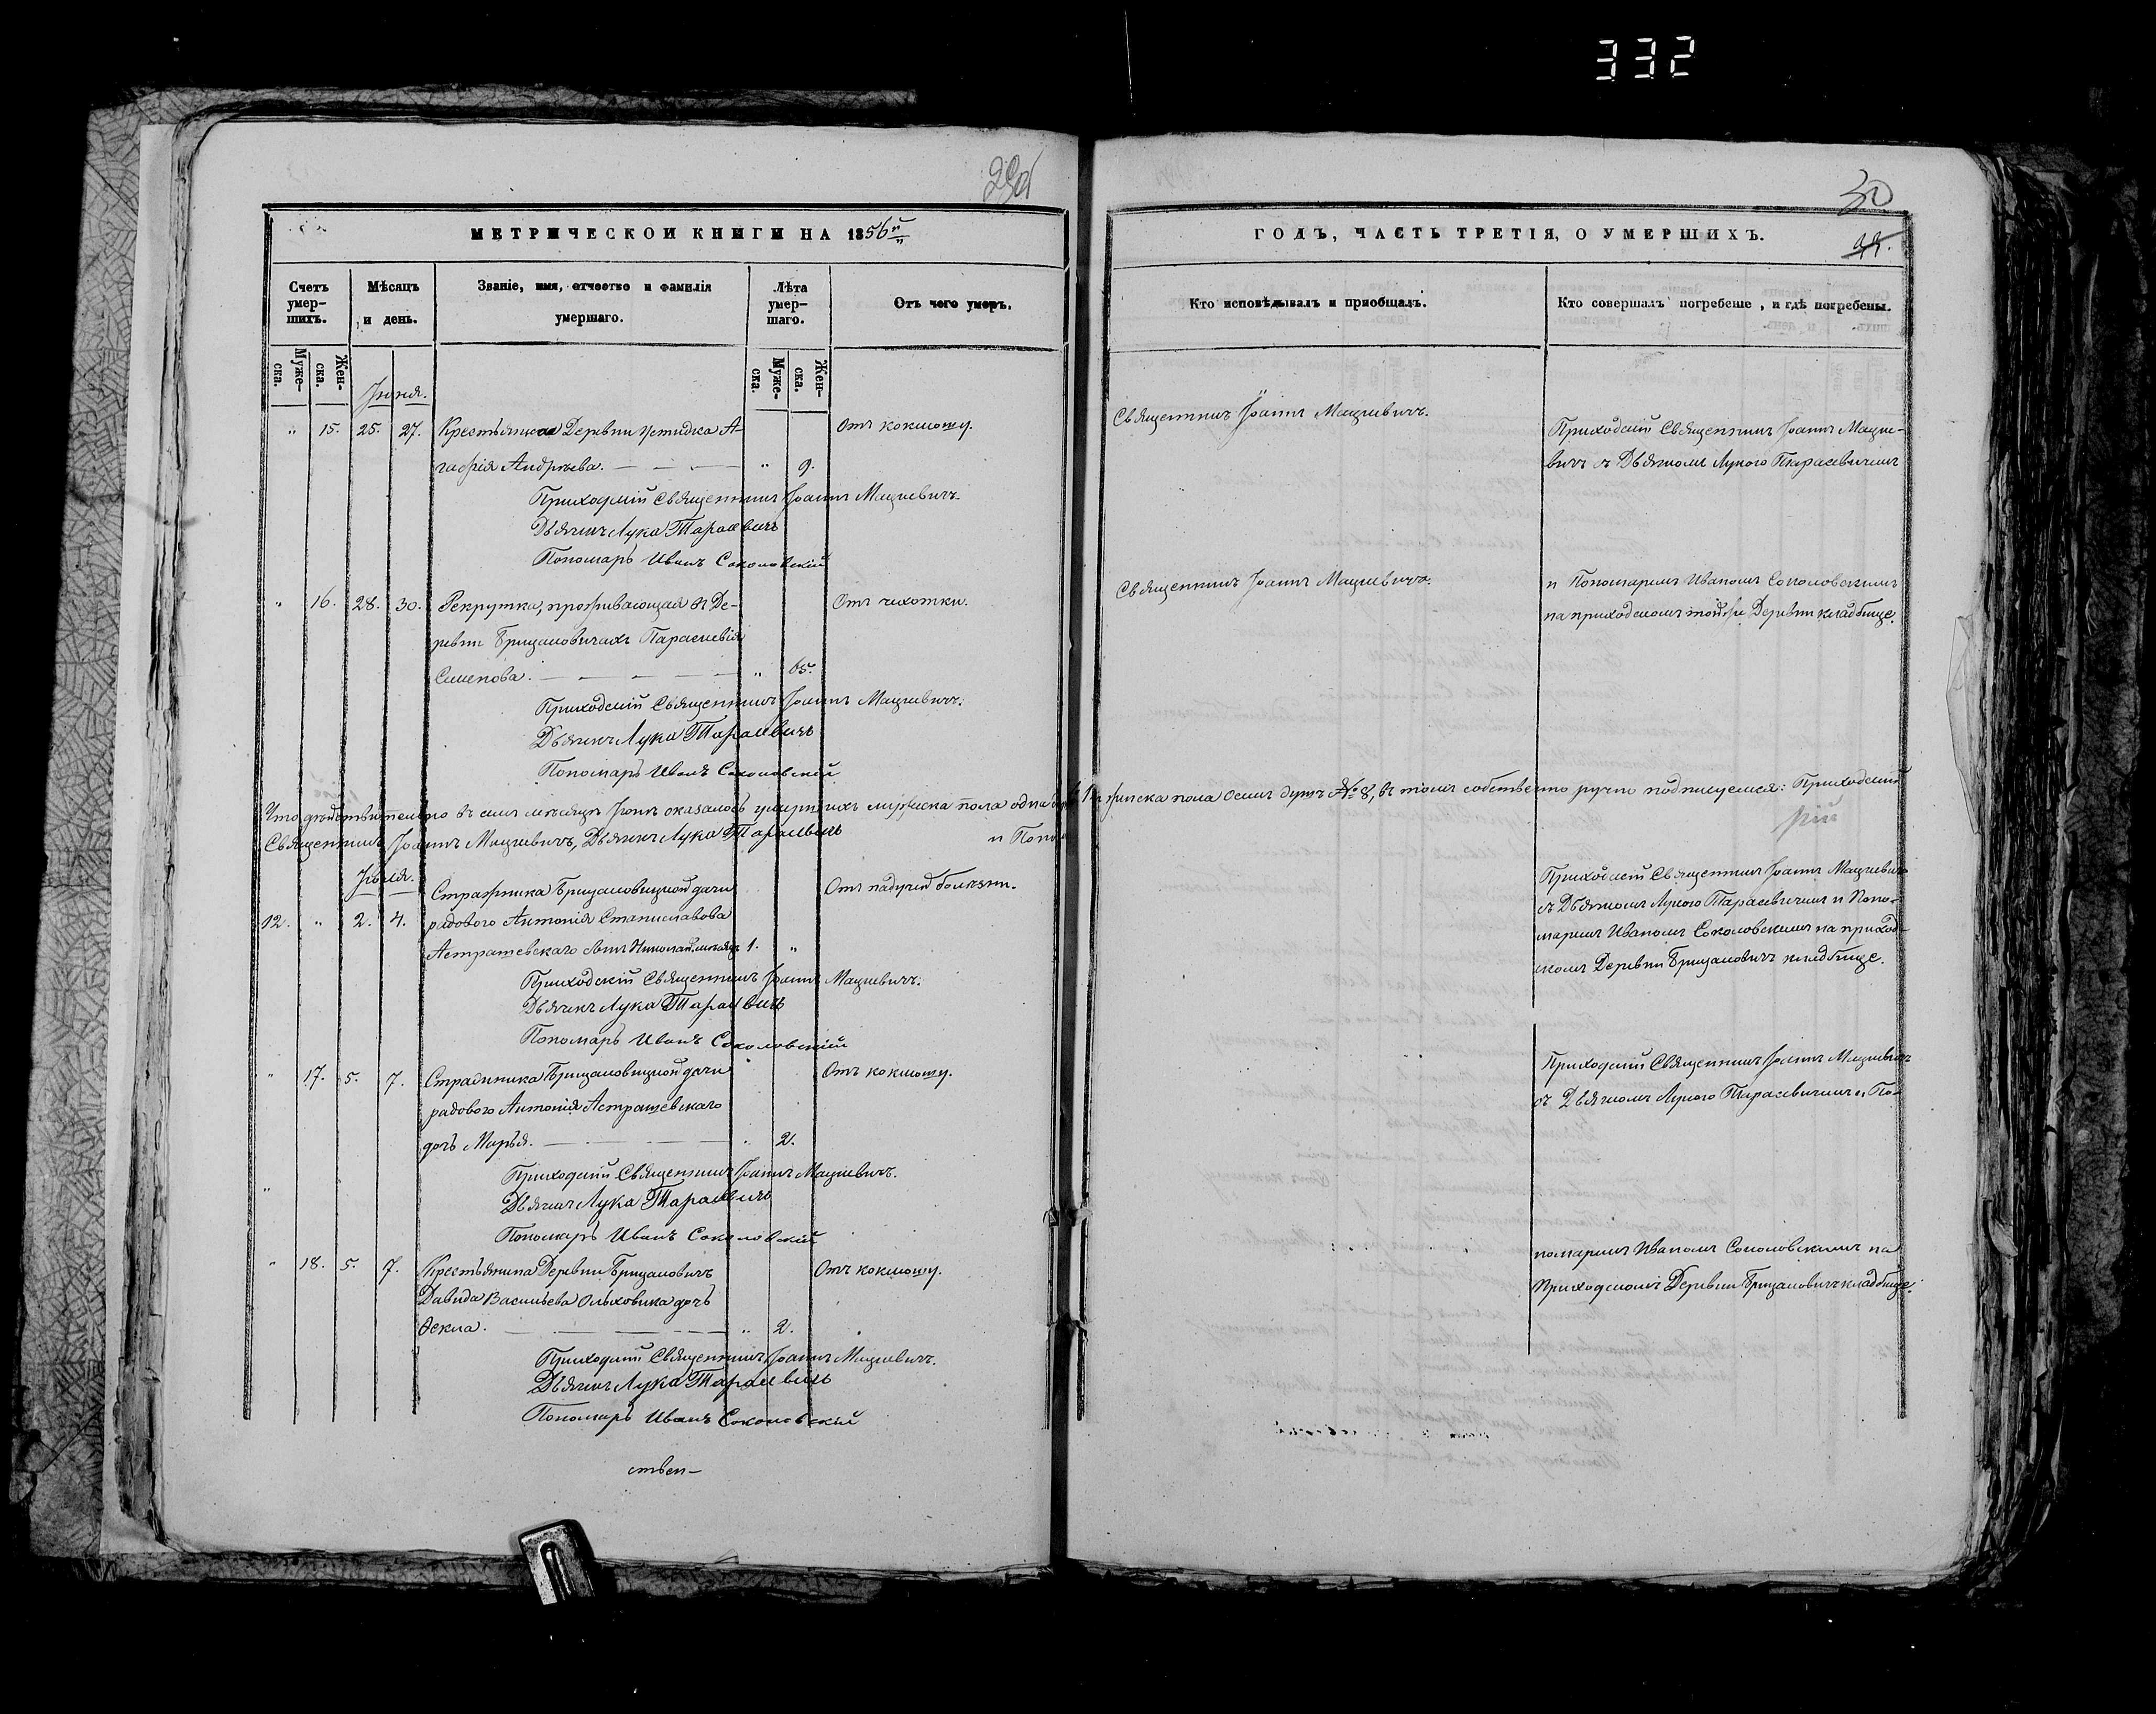 332
30
МЕТРИЧЕСКОЙ КНИГИ НА 1856й
ГОДЪ, ЧАСТЬ ТРЕТІЯ, О УМЕРШИХЪ.
Счетъ умер-
шихъ.
Мѣсяцъ
и день.
Званіе, имя, отчество и фамилія
умершаго.
Лѣта
умер-
шаго.
Отъ чего умеръ.
Кто исповѣдывалъ и пріобщалъ.
Кто совершалъ погребеніе, и гдѣ погребены.
Муже-
ска.
Жен-
ска.
Муже-
ска.
Жен-
ска.
Іюня.
" 15. 25. 27. Крестьянка Деревни А-
гафія Андреева. " 9.
Отъ коклюшу.
Священникъ Іоаннъ Мацкевичъ.
Приходскій Священникъ Іоаннъ Мацке-
вичъ съ Дьячкомъ Лукою Тарасевичемъ
Приходскій Священникъ Іоаннъ Мацкевичъ
Дьячекъ Лука Тарасевичъ
Пономарь Иванъ Соколовскій
" 16. 28. 30. Рекрутка, проживающая въ Де-
ревни Грицановичахъ Параскевія
Семенова. " 65.
Отъ чахотки.
Священникъ Іоаннъ Мацкевичъ.
и Пономаремъ Иваномъ Соколовскимъ
на приходскомъ той же Деревни кладбище.
Приходскій Священникъ Іоаннъ Мацкевичъ.
Дьячекъ Лука Тарасевичъ
Пономарь Иванъ Соколовскій
Что дѣйствительно въ семъ мѣсяцѣ Іюнѣ оказалось умершихъ мужеска пола одна женска пола осемь душъ № 8, въ томъ собственно ручно подписуемся: Приходскій
Священникъ Іоаннъ Мацкевичъ, Дьячекъ Лука Тарасевичъ и Поно
Іюля.
12. " 2. 4. Стражника Грицановицкой дачи
рядового Антонія Станиславова
Астрашевскаго сынъ Николай 1. "
Отъ падучей болезни.
Приходскій Священникъ Іоаннъ Мацкевичъ
съ Дьячкомъ Лукою Тарасевичемъ и Поно-
маремъ Иваномъ Соколовскимъ на приход-
скомъ Деревни Грицановичъ кладбище.
Приходскій Священникъ Іоаннъ Мацкевичъ.
Дьячекъ Лука Тарасевичъ
Пономарь Иванъ Соколовскій
" 17. 5. 7. Стражника Грицановицкой дачи
рядового Антонія Астрашевскаго
дочь Марья. " 2.
Отъ коклюшу.
Приходскій Священникъ Іоаннъ Мацкевичъ
съ Дьячкомъ Лукою Тарасевичемъ и По-
Приходскій Священникъ Іоаннъ Мацкевичъ.
Дьячекъ Лука Тарасевичъ
Пономарь Иванъ Соколовскій
" 18. 5. 7. Крестьянина Деревни Грицановичъ
Давида Васильева Ольховика дочь
Ѳекла. " 2.
Отъ коклюшу.
номаремъ Иваномъ Соколовскимъ на
Приходскомъ Деревни Грицановичъ кладбище.
Приходскій Священникъ Іоаннъ Мацкевичъ.
Дьячекъ Лука Тарасевичъ
Пономарь Иванъ Соколовскій
ствен-